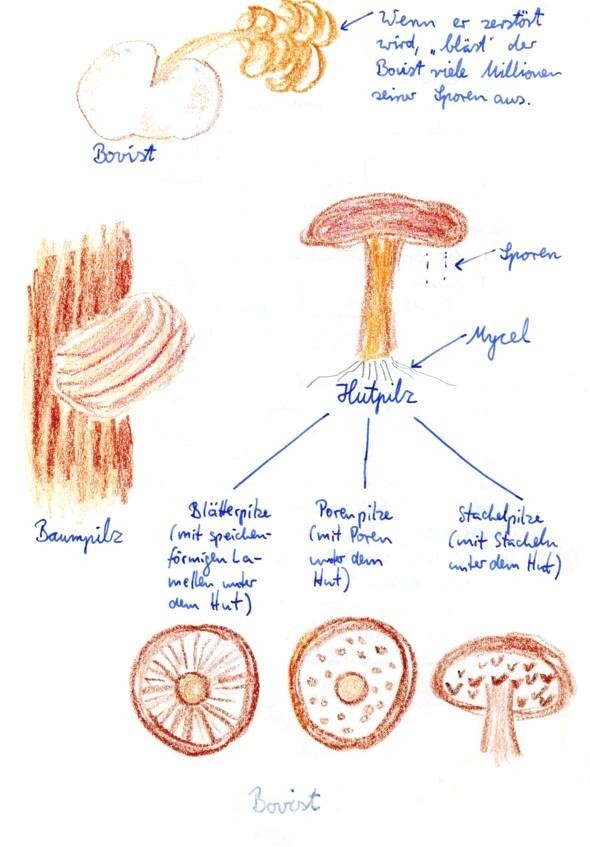 Wenn er zerstört
wird, „bläst" der
Bovist viele Millionen
seiner Sporen aus.
Bovist
Sporen
Mycel
Hutpilz
Baumpilz
Blätterpilze
(mit speichen-
förmigen La-
mellen unter
dem Hut)
Porenpilze
(mit Poren
unter dem
Hut)
Stachelpilze
(mit Stacheln
unter dem Hut)
Bovist